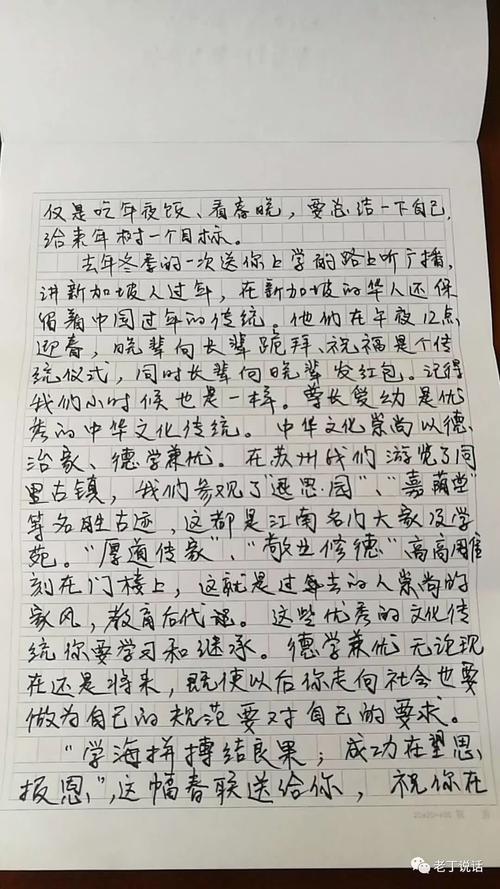 仅是吃年夜饭、看春晚，要总结一下自己，
给来年树一个目标。
去年冬季的一次送你上学的路上听广播，
讲新加坡人过年，在新加坡的华人还保
留着中国过年的传统。他们在午夜12点
迎春，晚辈向长辈跪拜、祝福是个传
统仪式，同时长辈向晚辈发红包。记得
我们小时候也是一样。尊长爱幼是优
秀的中华文化传统。中华文化崇尚以德
治家、德学兼优。在苏州我们游览了同
里古镇，我们参观了"退思园"、"嘉荫堂"
等名胜古迹，这都是江南名门大家及学
苑。"厚道传家"、"敬业修德"高高雕
刻在门楼上，这就是过去的人崇尚的
家风，教育后代。这些优秀的文化传
统你要学习和继承。德学兼优无论现
在还是将来，既使以后你走向社会也要
做为自己的规范要对自己的要求。
"学海拼搏结良果；成功在望思
报恩"，这幅春联送给你，祝你在
20×20=400
老丁说话